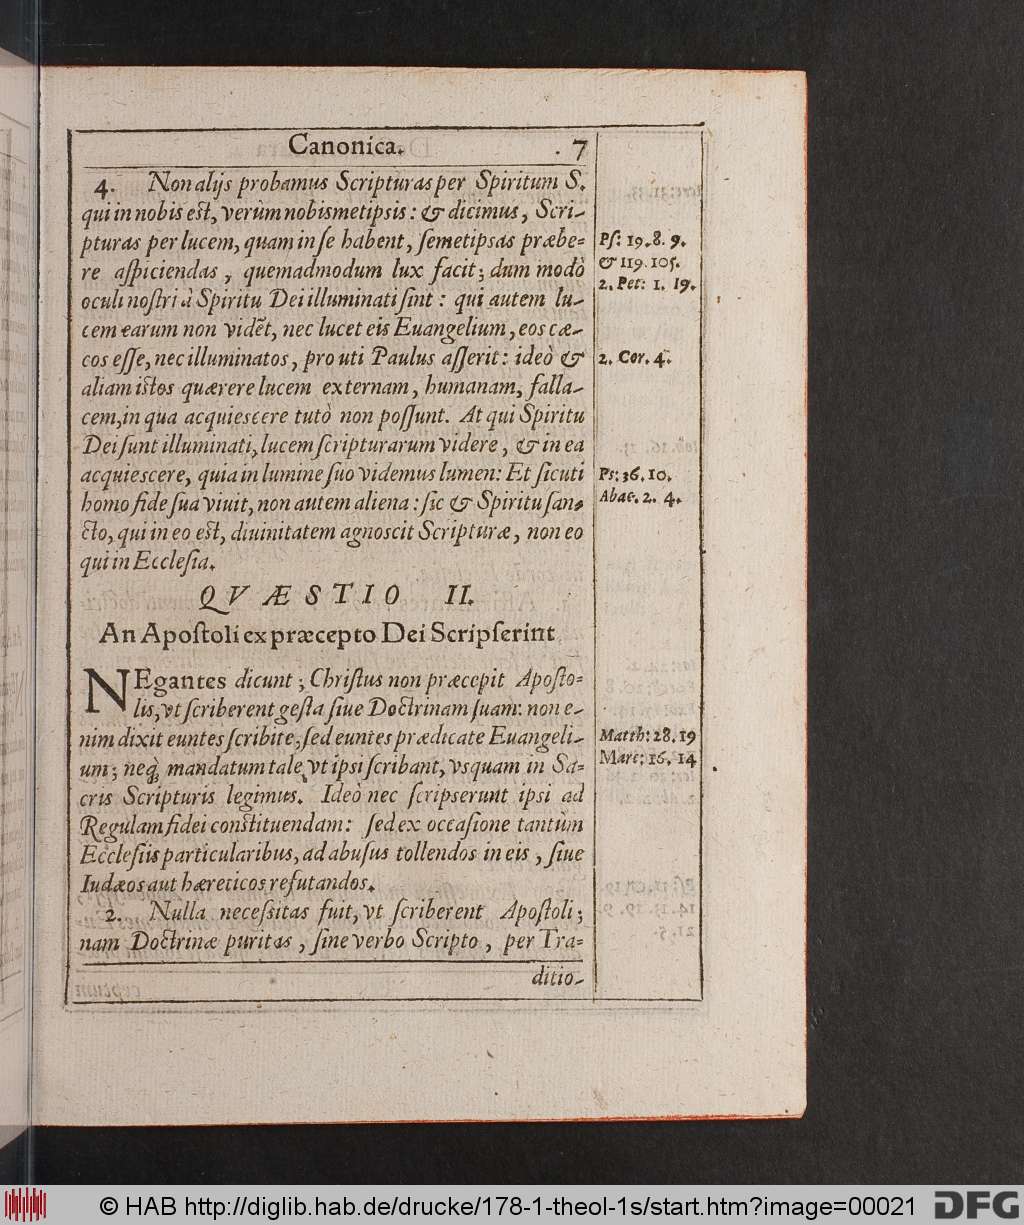 Canonica. 7
4. Non alijs probamus Scripturas per Spiritum S.
qui in nobis est, verùm nobismetipsis: & dicimus, Scri-
pturas per lucem, quam in ſe habent, ſemetipsas præbe=
re aſpiciendas, quemadmodum lux facit; dum modò
oculi noſtri à Spiritu Dei illuminati ſint: qui autem lu-
cem earum non vidēt, nec lucet eis Euangelium, eos cæ-
cos eſſe, nec illuminatos, pro uti Paulus aſſerit: ideò &
aliam istos quærere lucem externam, humanam, falla-
cem, in qua acquiescere tutò non poſſunt. At qui Spiritu
Dei ſunt illuminati, lucem ſcripturarum videre, & in ea
acquiescere, quia in lumine ſuo videmus lumen: Et ſicuti
homo fide ſua viuit, non autem aliena: ſic & Spiritu ſan-
cto, qui in eo est, diuinitatem agnoscit Scripturæ, non eo
qui in Eccleſia.
Pſ: 19. 8. 9.
& 119. 105.
2. Pet: 1. 19.
2. Cor. 4.
Ps: 36. 10.
Abac. 2. 4.
QVÆSTIO II.
An Apoſtoli ex præcepto Dei Scripſerint
NEgantes dicunt; Chriſtus non præcepit Apoſto=
lis, vt ſcriberent geſta ſiue Doctrinam ſuam: non e-
nim dixit euntes ſcribite, ſed euntes prædicate Euangeli-
um; neq́; mandatum tale, vt ipsi ſcribant, vsquam in Sa=
cris Scripturis legimus. Ideò nec ſcripserunt ipsi ad
Regulam fidei constituendam: ſed ex occaſione tantùm
Eccleſiis particularibus, ad abuſus tollendos in eis, ſiue
Iudæos aut hæreticos refutandos.
2. Nulla neceſsitas fuit, vt ſcriberent Apoſtoli;
nam Doctrinæ puritas, ſine verbo Scripto, per Tra=
ditio-
Matth: 28. 19
Marc: 16. 14
© HAB http://diglib.hab.de/drucke/178-1-theol-1s/start.htm?image=00021
DFG